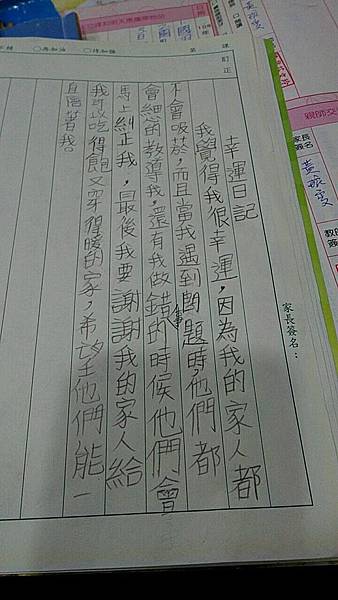 幸運日記
我覺得我很幸運，因為我的家人都
不會吸菸，而且當我遇到問題時，他們都
會細心的教導我，還有我做錯事的時候他們會
馬上糾正我，最後我要謝謝我的家人給
我可以吃得飽又穿得暖的家，希望他們能一
直陪著我。
家長簽名：
訂正
第
課